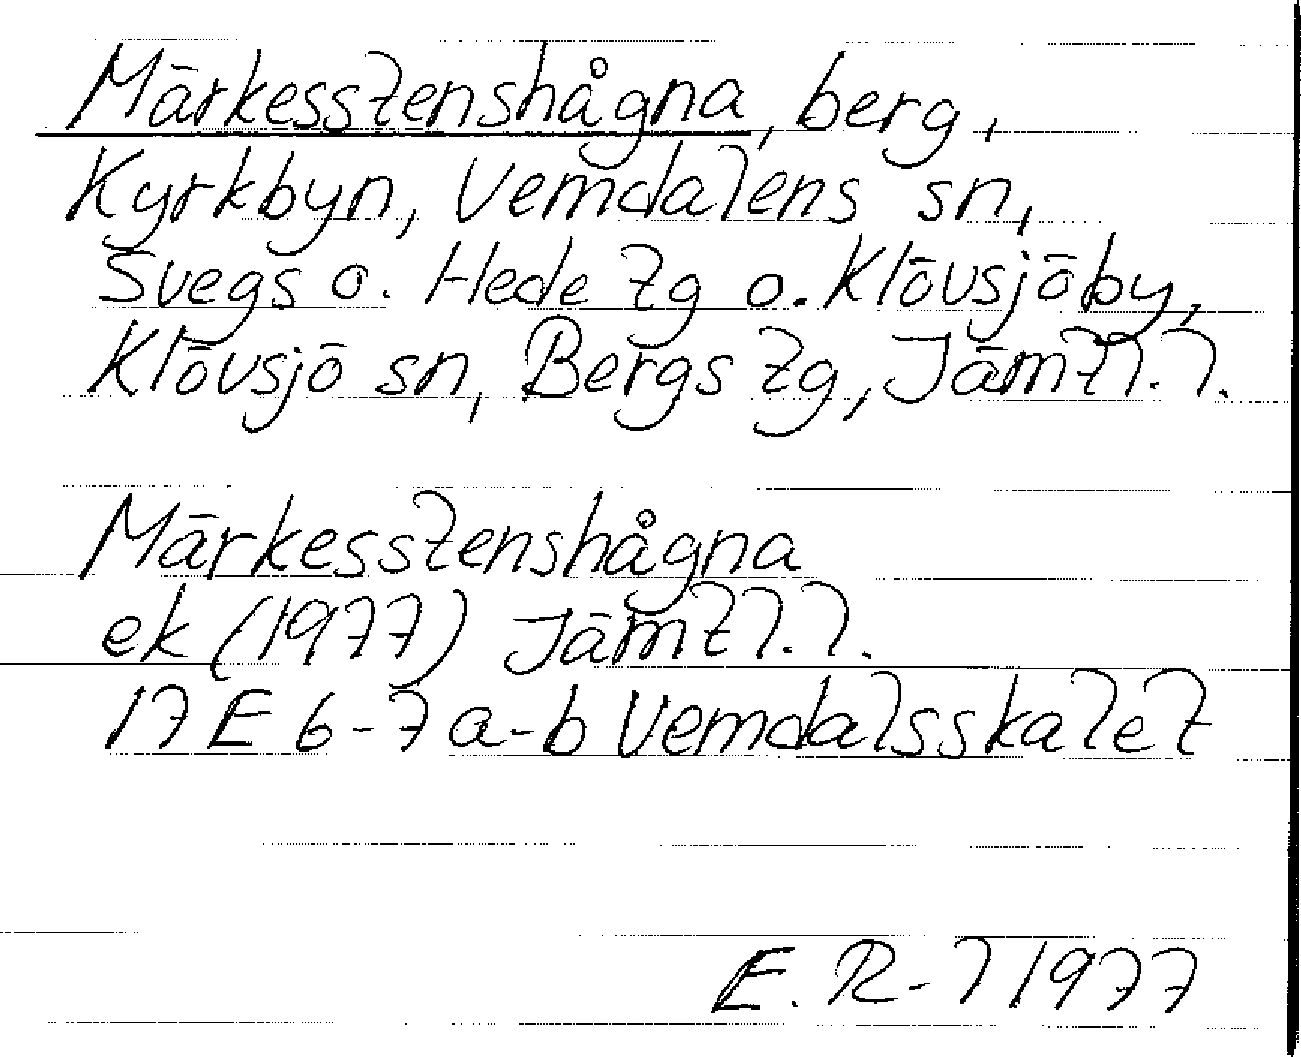 Märkesstenshågna, berg,
Kyrkbyn, Vemdalens sn,
Svegs o. Hede tg o. Klövsjöby,
Klövsjö sn, Bergs tg, Jämtl. l.
Märkesstenshågna
ek (1977) Jämtl. l.
17 E 6-7 a-b Vemdalsskalet
E. R-l 1977